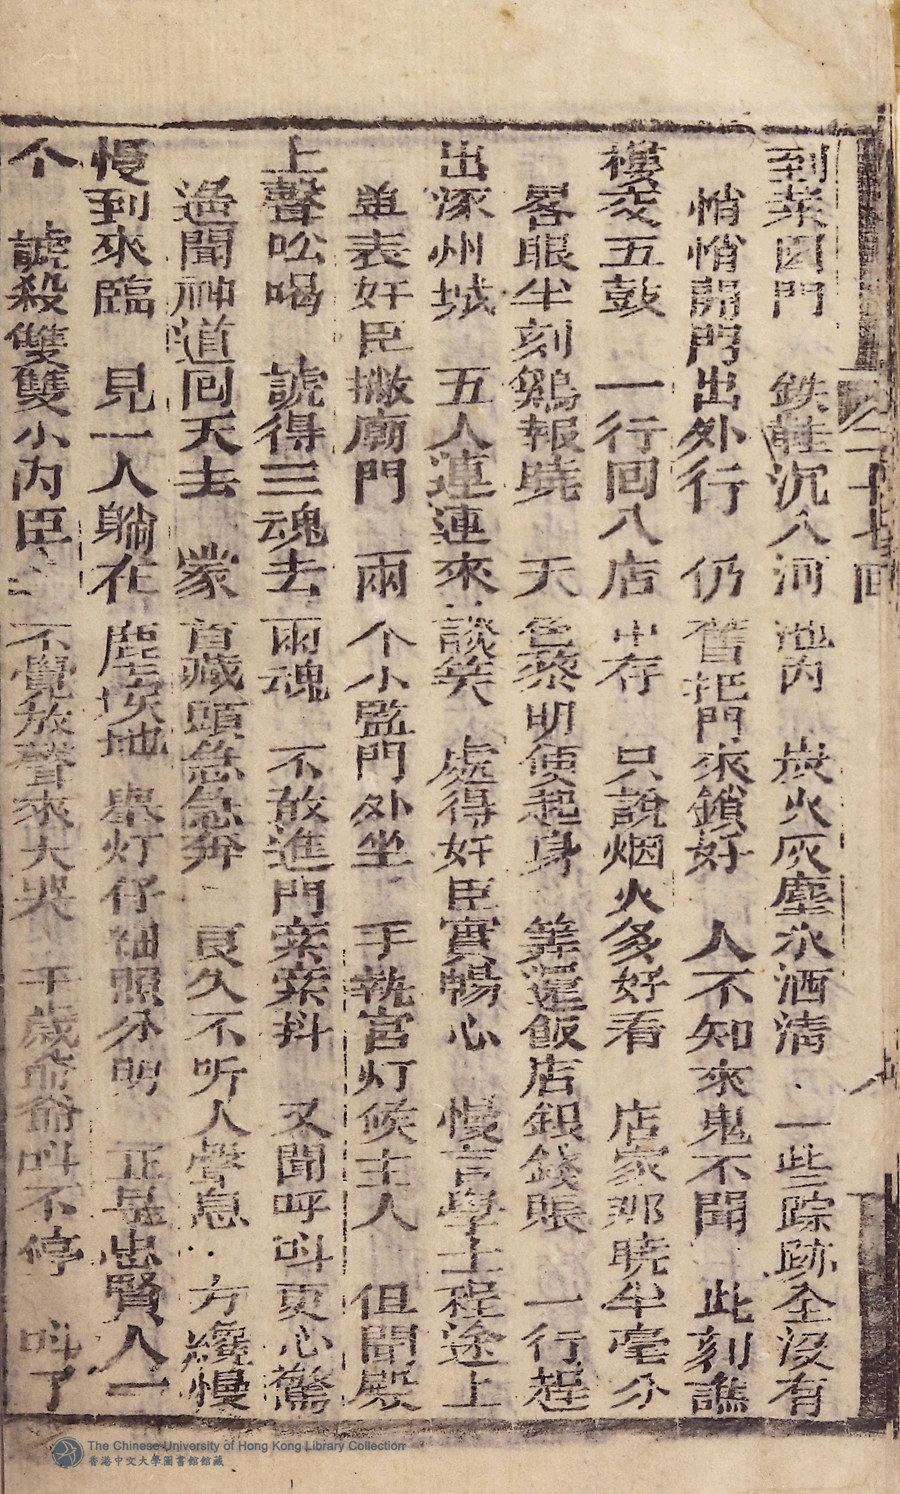 到菜园門 鉄鞋沉入河池内 炭火灰塵氷洒淸 一些踪跡全沒有
悄悄開門出外行 仍舊把門來鎖好 人不知來鬼不聞 此刻譙
樓交五鼓 一行回入店中存 只說烟火多好看 店家那暁半毫分
畧眼半刻鷄報暁 天色黎明便起身 筭還飯店銀錢賬 一行趕
出涿州城 五人連連來談笑 處得奸臣實暢心 慢言學士程途上
単表奸臣撇廟門 兩个小監門外坐 手執宫灯候主人 但聞殿
上聲吆喝 諕得三魂去兩魂 不敢進門索索抖 又聞呼呌更心驚
過聞神道囘天去 蒙首藏頭急急奔 良久不听人聲息 方纔慢
慢到來臨 見一人躺在塵埃地 舉灯仔細照分明 正是忠賢人一
个 諕殺雙雙小内臣 不覺放聲來大哭 千歲爺爺呌不停 呌了
二十七回
The Chinese University of Hong Kong Library Collection
香港中文大學圖書館館藏